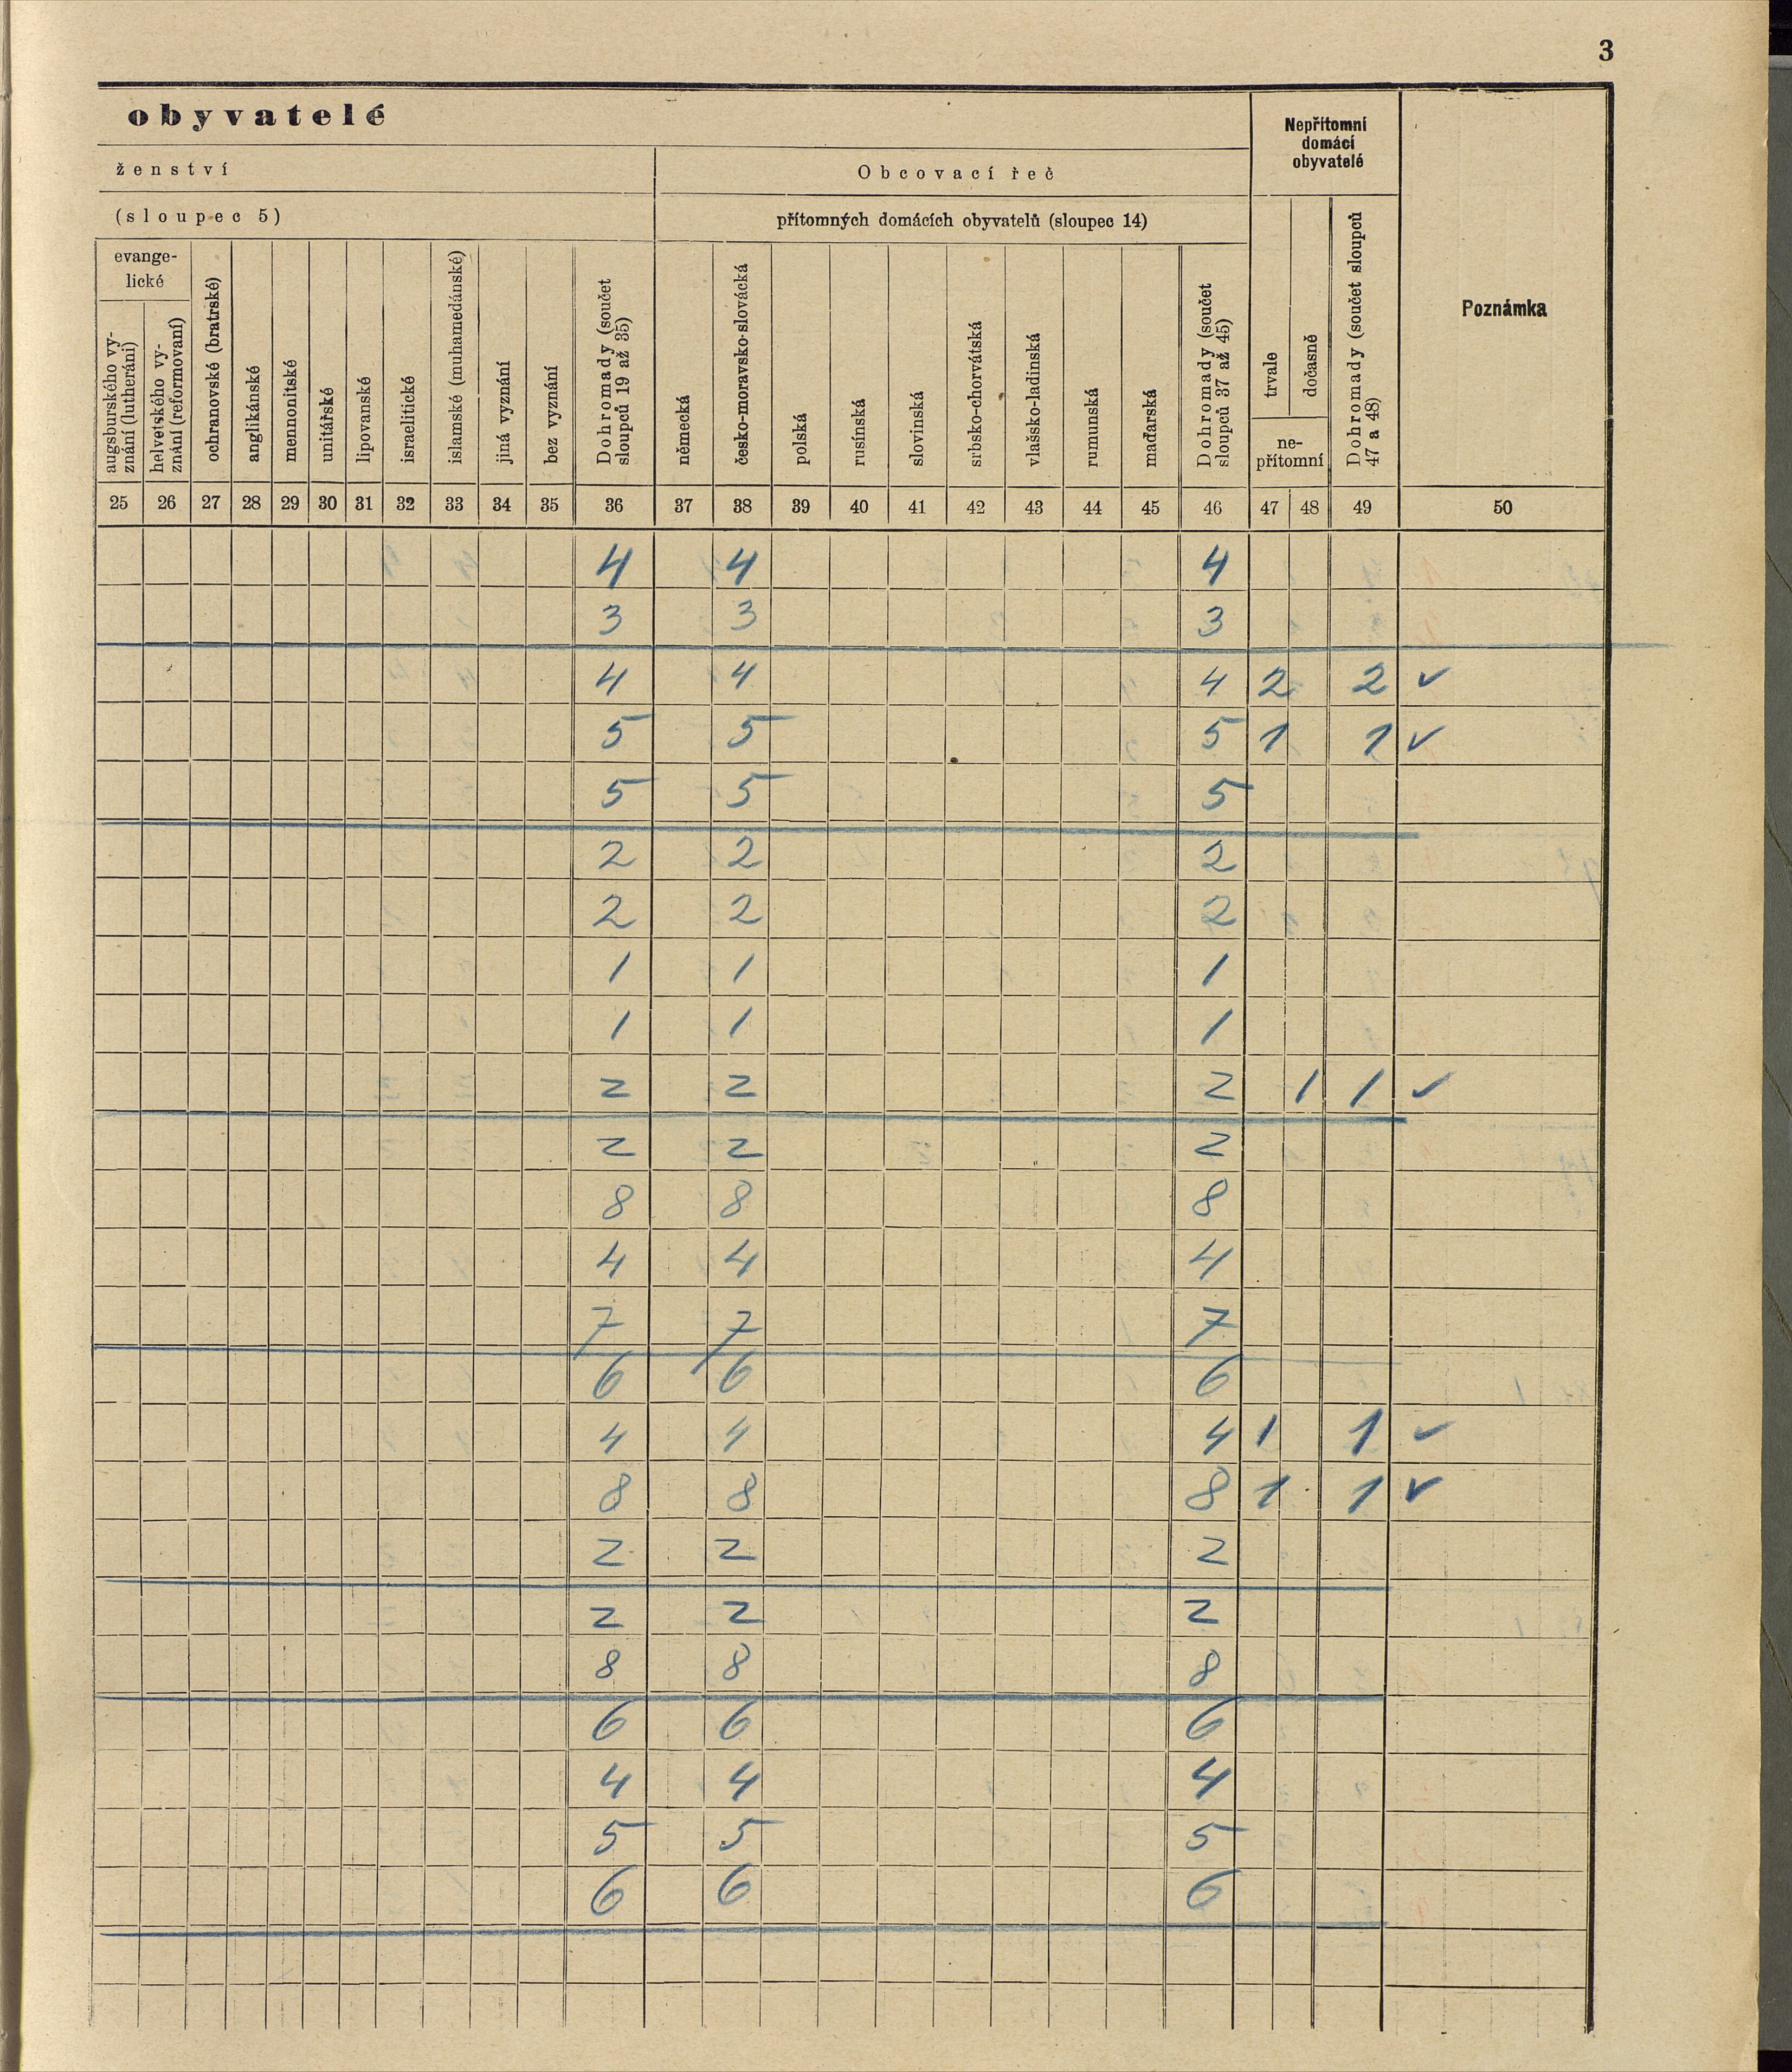 3
obyvatelé
Nepřítomní
domácí
obyvatelé
Poznámka
ženství
Obcovací řeč
(sloupec 5)
přítomných domácích obyvatelů (sloupec 14)
evange-
lické
augsburského vy-
znání (lutheráni)
helvetského vy-
znání (reformovaní)
ochranovské (bratrské)
anglikánské
mennonitské
unitářské
lipovanské
israelitické
islamské (muhamedánské)
jiná vyznání
bez vyznání
Dohromady (součet
sloupců 19 až 35)
německá
česko-moravsko-slovácká
polská
rusínská
slovinská
srbsko-chorvátská
vlašsko-ladinská
rumunská
maďarská
Dohromady (součet
sloupců 37 až 45)
trvale
dočasně
ne-
přítomní
Dohromady (součet sloupců
47 a 48)
25 26 27 28 29 30 31 32 33 34 35 36 37 38 39 40 41 42 43 44 45 46 47 48 49 50
4 4 4
3 3 3
4 4 4 2 2 ✓
5 5 5 1 1 ✓
5 5 5
2 2 2
2 2 2
1 1 1
1 1 1
2 2 2 1 1 ✓
2 2 2
8 8 8
4 4 4
7 7 7
6 6 6
4 4 4 1 1 ✓
8 8 8 1 1 ✓
2 2 2
2 2 2
8 8 8
6 6 6
4 4 4
5 5 5
6 6 6